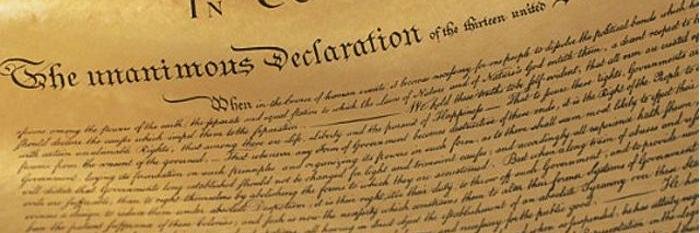 IN CO
The unanimous Declaration of the thirteen united
When in the Course of human events, it becomes necessary for one people to dissolve the political bands which
among the powers of the earth, the separate and equal station to which the Laws of Nature and of Nature's God entitle them, a decent respect to
should declare the causes which impel them to the separation. — We hold these truths to be self-evident, that all men are created
with certain unalienable Rights, that among these are Life, Liberty and the pursuit of Happiness. — That to secure these rights, Governments are
powers from the consent of the governed, — That whenever any Form of Government becomes destructive of these ends, it is the Right of the People to
Government, laying its foundation on such principles and organizing its powers in such form, as to them shall seem most likely to effect their
will dictate that Governments long established should not be changed for light and transient causes; and accordingly all experience hath shewn
evils are sufferable, than to right themselves by abolishing the forms to which they are accustomed. But when a long train of abuses and
a design to reduce them under absolute Despotism, it is their right, it is their duty, to throw off such Government, and to provide
been the patient sufferance of these Colonies; and such is now the necessity which constrains them to alter their former Systems of Government
all having in direct object the establishment of an absolute Tyranny over these
necessary for the public good. — He has